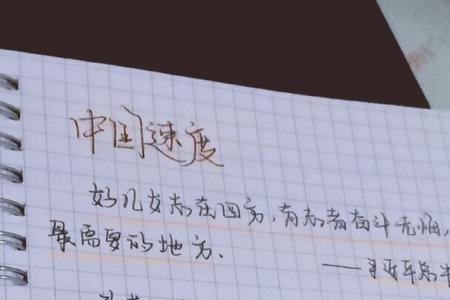 中国速度
好儿女志在四方，有志者奋斗无悔，
最需要的地方．
——习近平总书